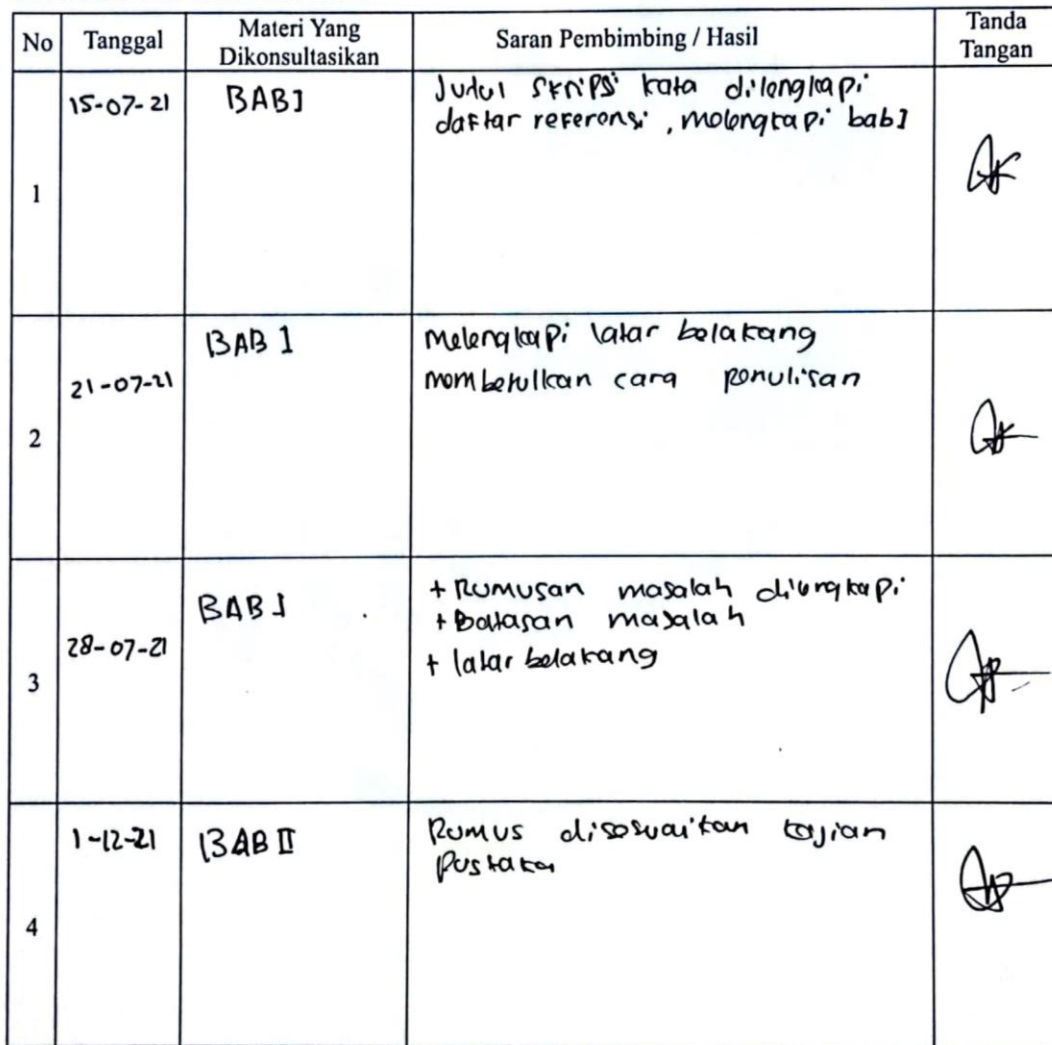 No Tanggal Materi Yang Dikonsultasikan Saran Pembimbing / Hasil Tanda Tangan
1 15-07-21 BAB I Judul skripsi kata dilengkapi
daftar referensi, melengkapi bab I
2 21-07-21 BAB I Melengkapi latar belakang
membetulkan cara penulisan
3 28-07-21 BAB I + Rumusan masalah dilengkapi
+ Batasan masalah
+ latar belakang
4 1-12-21 BAB II Rumus disesuaikan kajian
Pustaka